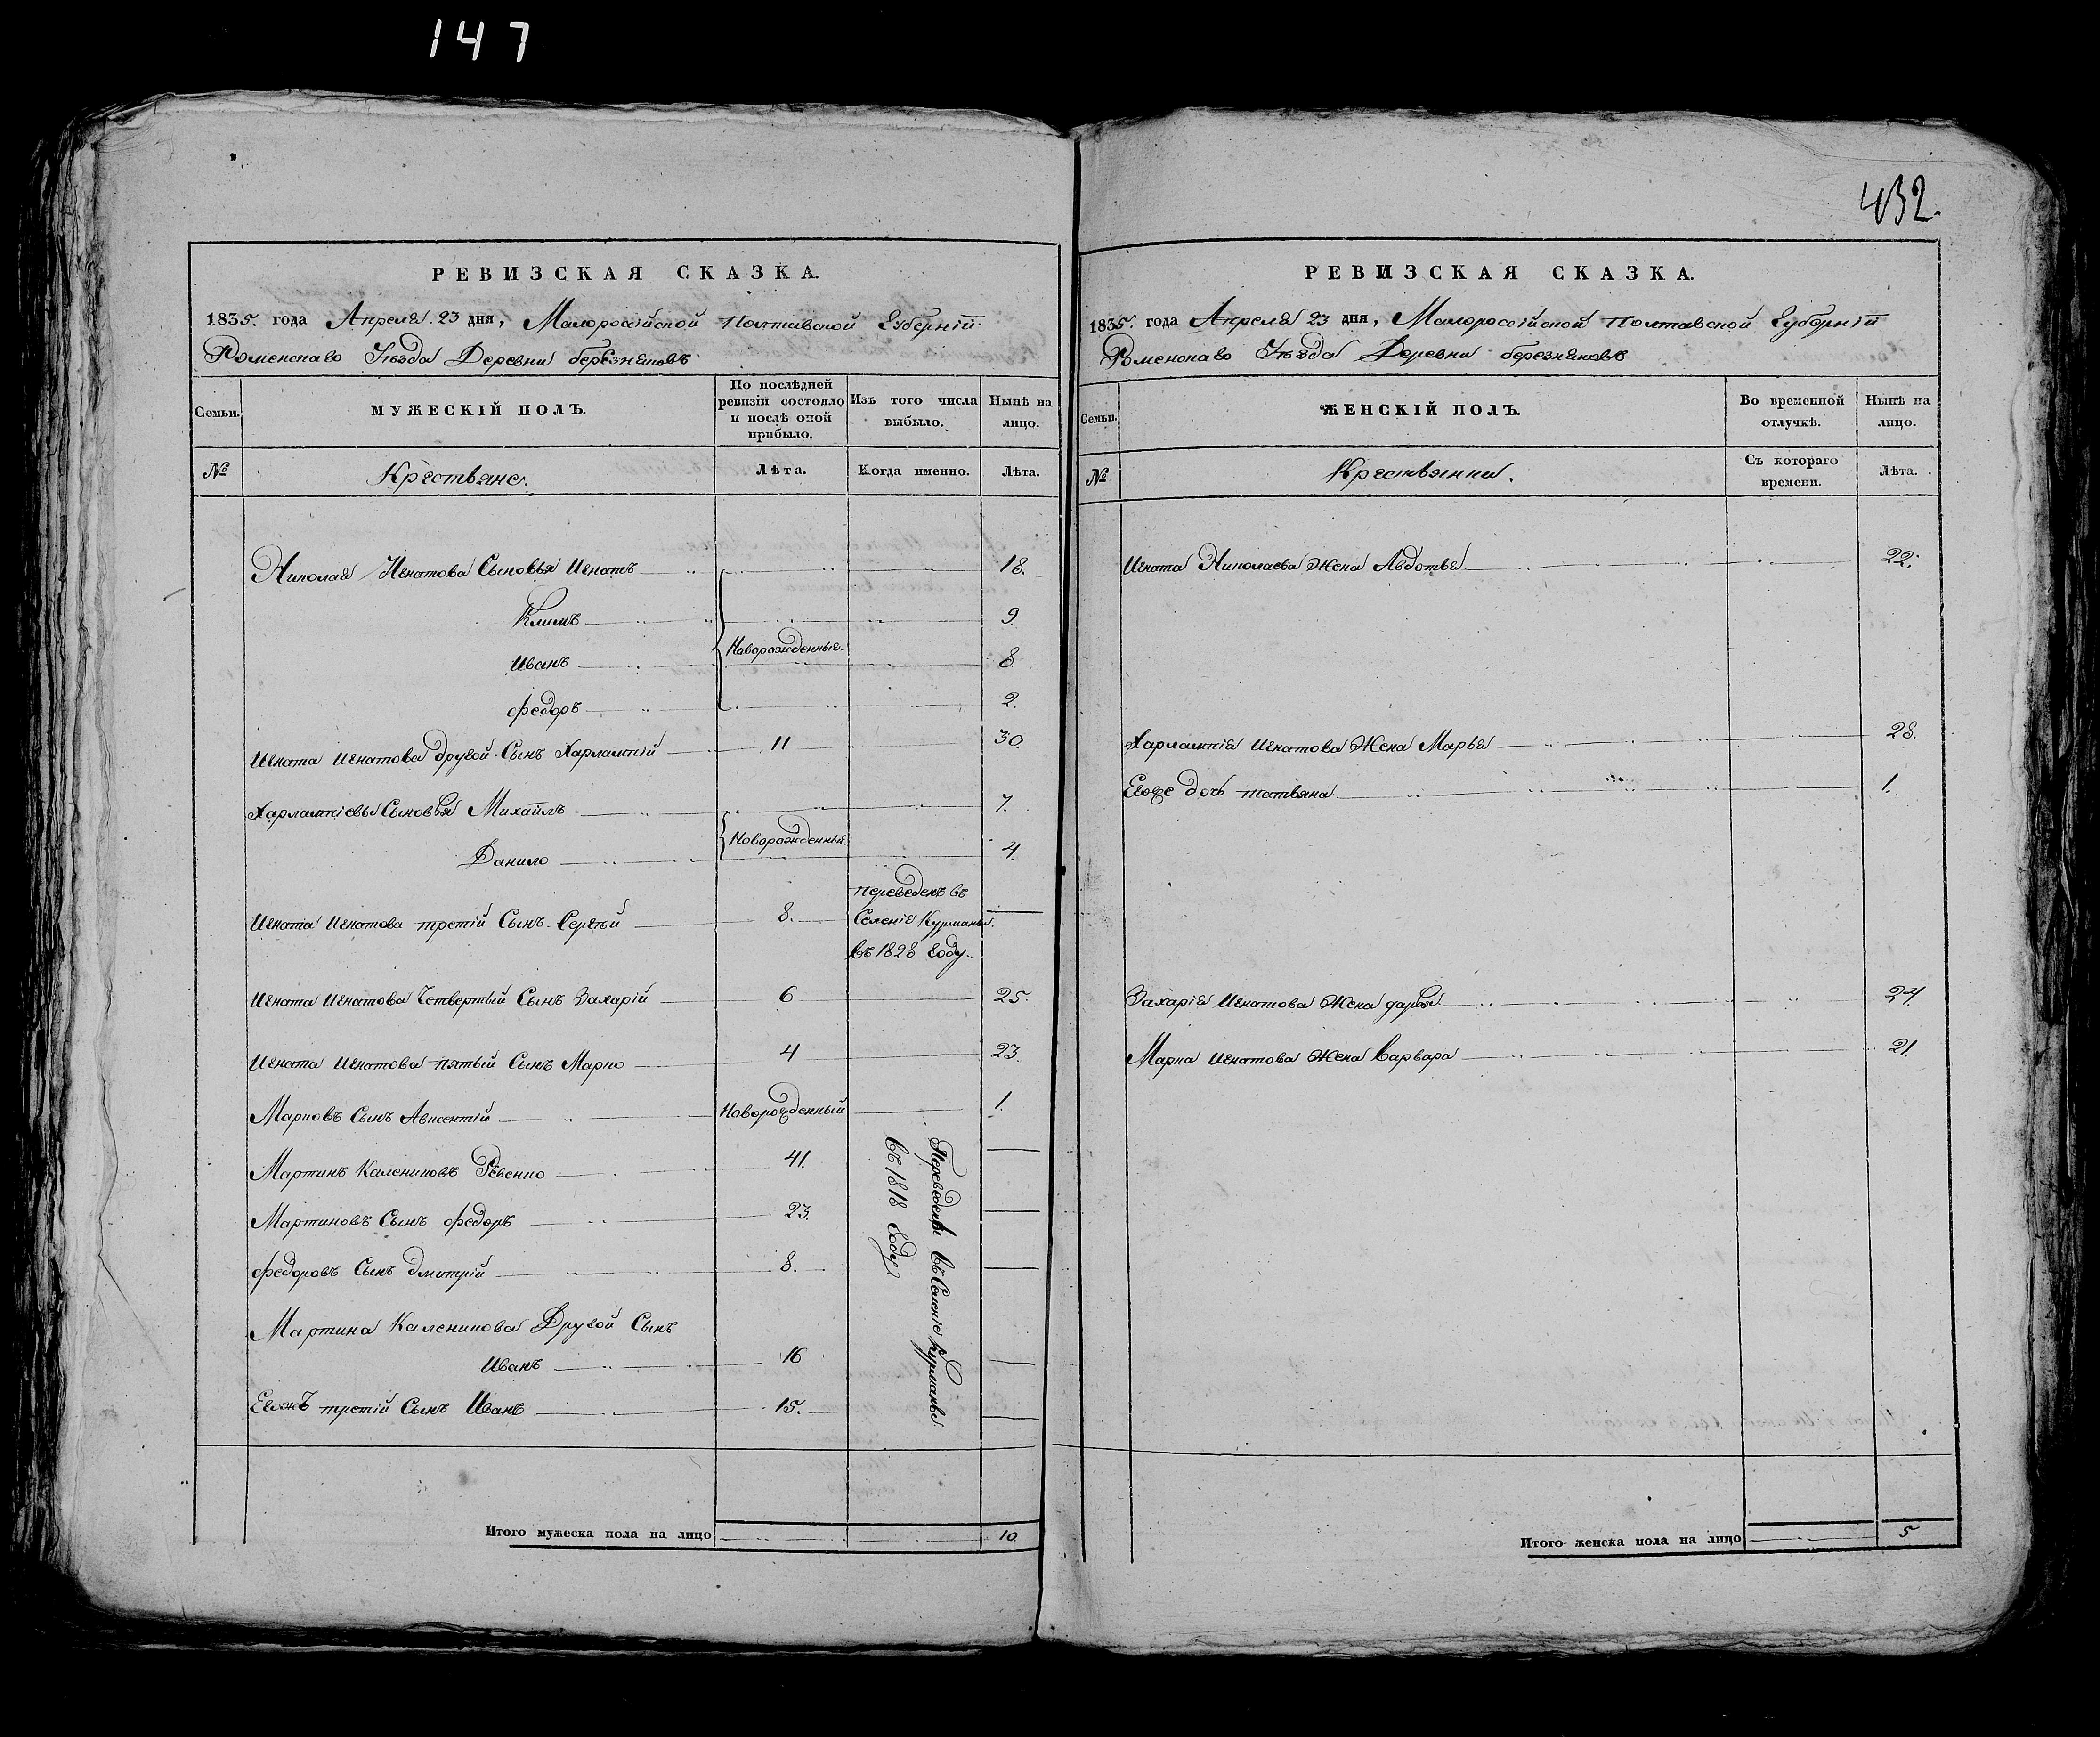 147
432.
РЕВИЗСКАЯ СКАЗКА.
1835. года Апреля 23 дня, Малороссійской Полтавской Губерніи
Роменскаго Уѣзда Деревни березняковъ
Семьи.
МУЖЕСКІЙ ПОЛЪ.
По послѣдней ревизіи состояло и послѣ оной прибыло.
Изъ того числа выбыло.
Нынѣ на лицо.
№
Крестьяне.
Лѣта.
Когда именно.
Лѣта.
Николая Игнатова Сыновья Игнатъ 18.
Климъ 9.
Новорожденныя.
Иванъ 8.
федоръ 2.
Игната Игнатова другой Сынъ Харлампій 11 30.
Харлампіевы Сыновья Михайлъ 7.
Новорожденныя.
Данило 4.
переведенъ въ
Игната Игнатова третій Сынъ Сергѣй 8. Селеніе Курманы.
въ 1828 году.
Игната Игнатова Четвертый Сынъ Захарій 6 25.
Игната Игнатова пятый Сынъ Марко 4 23.
Марковъ Сынъ Авксентій Новорожденный 1.
Мартинъ Калениковъ Ревенко 41.
Мартиновъ Сынъ федоръ 23.
федоровъ Сынъ дмитрій 8.
Мартина Каленикова Другой Сынъ
Иванъ 16
Егожъ третій Сынъ Иванъ 15.
Переведены въ Селеніе Курманы
въ 1818 году
Итого мужеска пола на лицо 10
РЕВИЗСКАЯ СКАЗКА.
1835. года Апреля 23 дня, Малороссійской Полтавской Губерніи
Роменскаго Уѣзда Деревни березняковъ
Семьи.
ЖЕНСКІЙ ПОЛЪ.
Во временной отлучкѣ.
Нынѣ на лицо.
№
Крестьянки.
Съ котораго времени.
Лѣта.
Игната Николаева Жена Авдотья 22.
Харлампія Игнатова Жена Марья 28.
Егоже дочь татьяна 1.
Захарія Игнатова Жена дарья 24.
Марка Игнатова Жена Варвара 21.
Итого женска пола на лицо 5